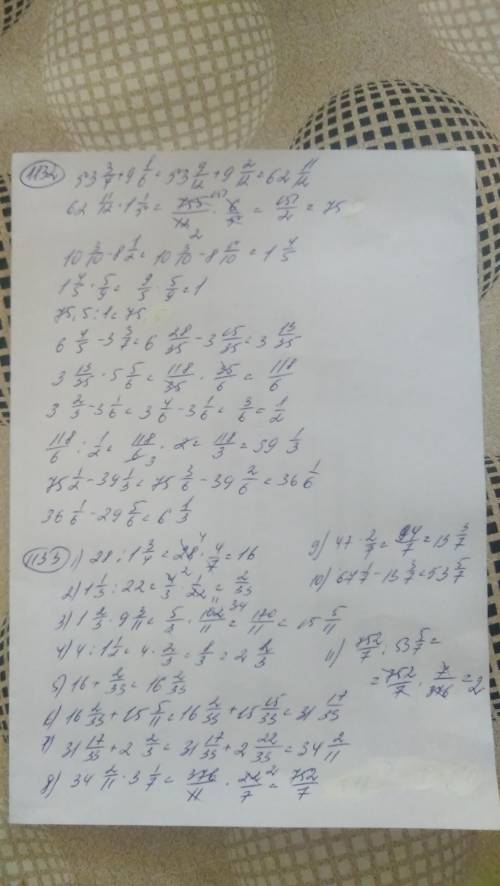 1132 53 3/4 + 9 1/6 = 53 9/12 + 9 2/12 = 62 11/12
62 11/12 · 1 1/5 = 755/12 · 6/5 = 151/2 = 75
10 3/10 - 8 1/2 = 10 3/10 - 8 5/10 = 1 4/5
1 4/5 · 5/9 = 9/5 · 5/9 = 1
75,5 : 1 = 75
6 4/5 - 3 3/7 = 6 28/35 - 3 15/35 = 3 13/35
3 13/35 · 5 5/6 = 118/35 · 35/6 = 118/6
3 2/3 - 3 1/6 = 3 4/6 - 3 1/6 = 3/6 = 1/2
118/6 : 1/2 = 118/6 · 2 = 118/3 = 39 1/3
75 1/2 - 39 1/3 = 75 3/6 - 39 2/6 = 36 1/6
36 1/6 - 29 5/6 = 6 1/3
1133 1) 28 : 1 3/4 = 28 · 4/7 = 16
2) 1 1/3 : 22 = 4/3 · 1/22 = 2/33
3) 1 2/3 · 9 3/11 = 5/3 · 102/11 = 170/11 = 15 5/11
4) 4 : 1 1/2 = 4 · 2/3 = 8/3 = 2 2/3
5) 16 + 2/33 = 16 2/33
6) 16 2/33 + 15 5/11 = 16 2/33 + 15 15/33 = 31 17/33
7) 31 17/33 + 2 2/3 = 31 17/33 + 2 22/33 = 34 2/11
8) 34 2/11 · 3 1/7 = 376/11 · 22/7 = 752/7
9) 47 · 2/7 = 94/7 = 13 3/7
10) 67 1/7 - 13 3/7 = 53 5/7
11) 752/7 : 53 5/7 =
= 752/7 · 7/376 = 2